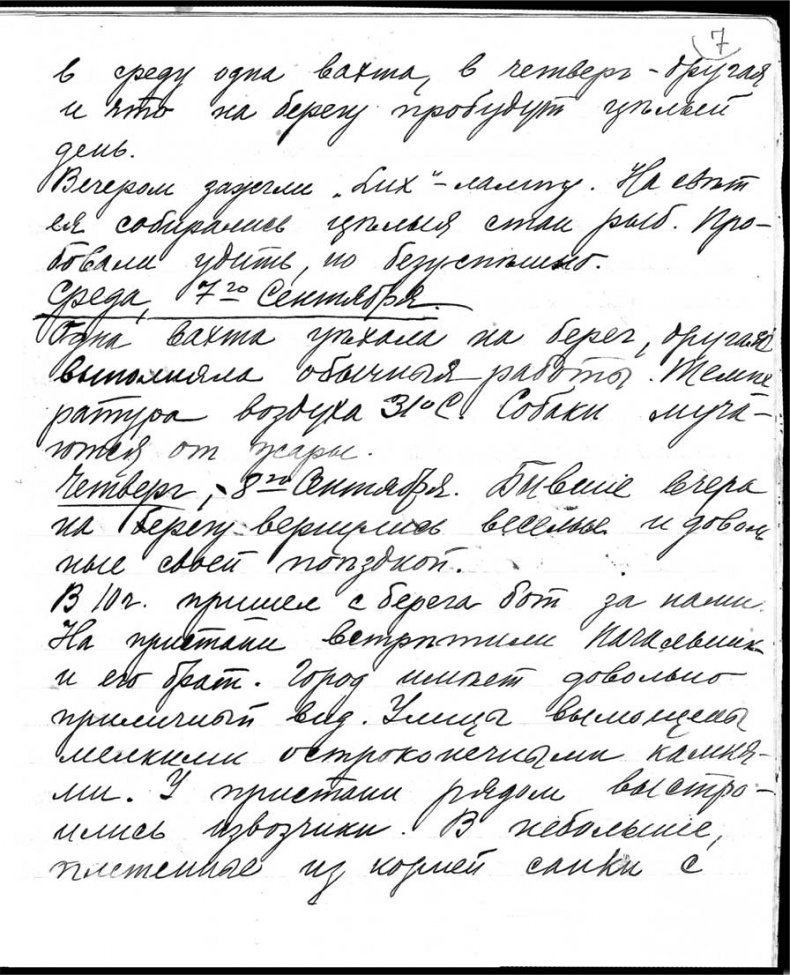 7
в среду одна вахта, в четверг - другая
и что на берегу пробудут цѣлый
день.
Вечером зажгли „Люкс"-лампу. На свѣт
ея собирались цѣлыя стаи рыб. Про-
бовали удить, но безуспѣшно.
Среда, 7го Сентября.
Одна вахта уѣхала на берег, другая
выполняла обычныя работы. Темпе
ратура воздуха 31°С. Собаки муча-
ются от жары.
Четверг, 8го Сентября. Бывшие вчера
на берегу вернулись веселые и доволь
ные своей поѣздкой.
В 10 г. пришел с берега бот за нами.
На пристани встрѣтили Начальник
и его брат. Город имѣет довольно
приличный вид. Улицы вымощены
мелкими остроконечными камня-
ми. У пристани рядом выстро-
ились извозчики. В небольшие,
плетенные из корней санки с